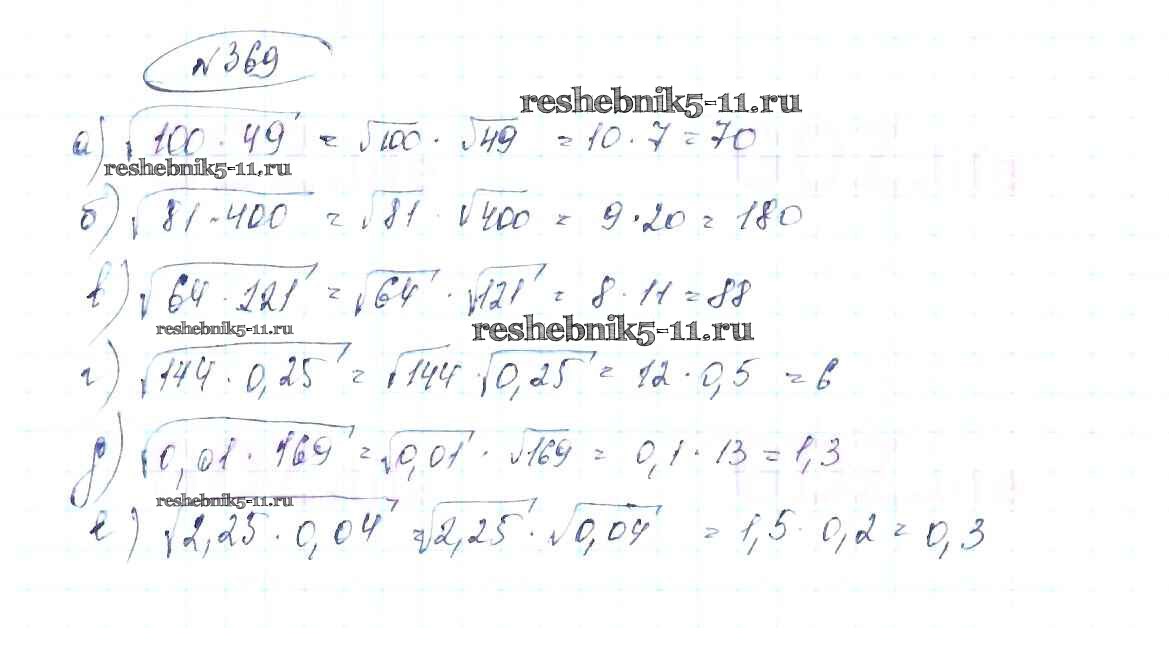 №369
reshebnik5-11.ru
а) √100 · 49 = √100 · √49 = 10 · 7 = 70
reshebnik5-11.ru
б) √81 · 400 = √81 · √400 = 9 · 20 = 180
в) √64 · 121 = √64 · √121 = 8 · 11 = 88
reshebnik5-11.ru
reshebnik5-11.ru
г) √144 · 0,25 = √144 · √0,25 = 12 · 0,5 = 6
д) √0,01 · 169 = √0,01 · √169 = 0,1 · 13 = 1,3
reshebnik5-11.ru
е) √2,25 · 0,04 = √2,25 · √0,04 = 1,5 · 0,2 = 0,3